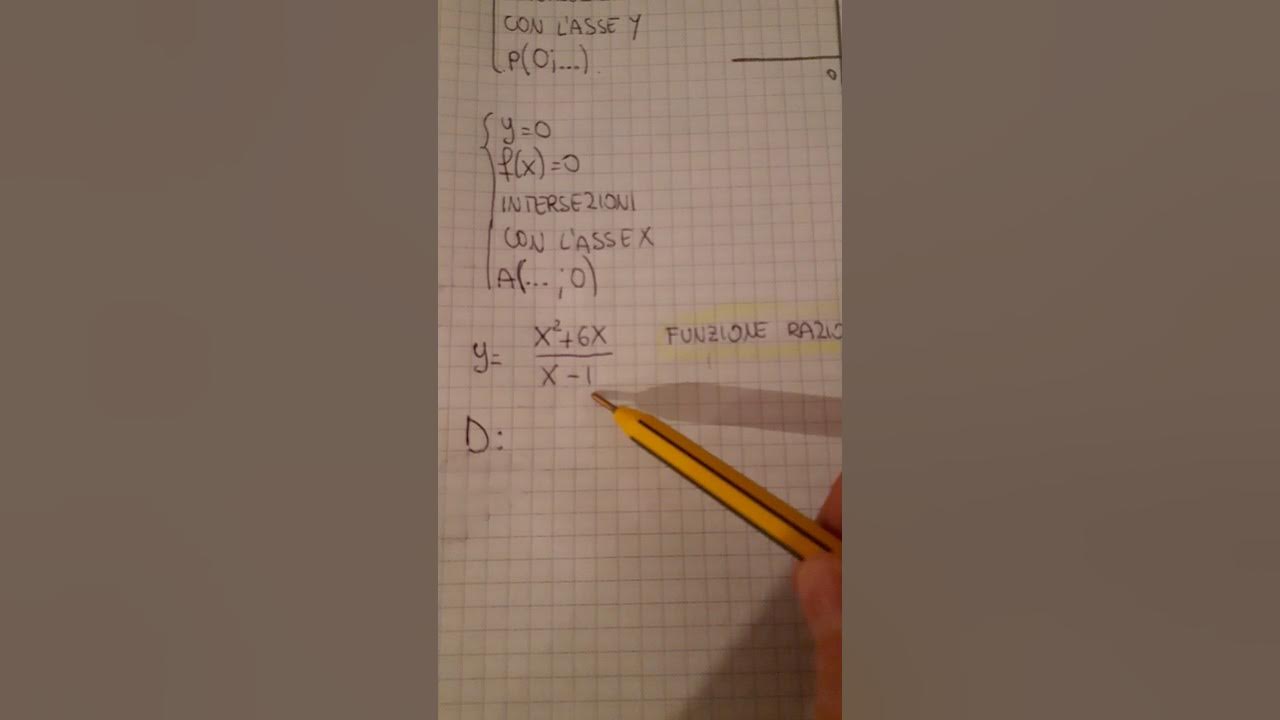 CON L'ASSE Y
P(0;...)
0
y=0
f(x)=0
INTERSEZIONI
CON L'ASSE X
A(...;0)
y= x²+6x
x-1
FUNZIONE RAZIO
D: